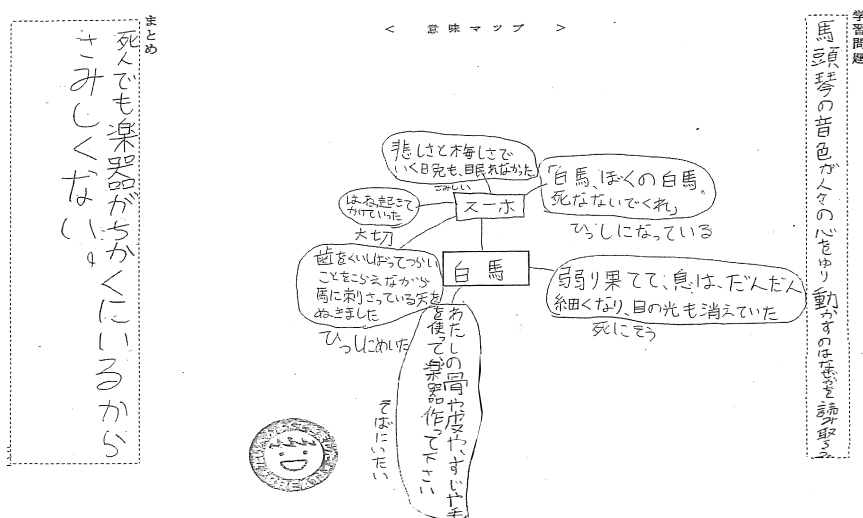 学習問題
馬頭琴の音色が人々の心をゆり動かすのはなぜかを読み取ろう
< 意味マップ >
悲しさと悔しさで
いく日免も、眠れなかった
さみしい
「白馬、ぼくの白馬。
死なないでくれ」
ひっしになっている
はね起きて
かけていった
大切
スーホ
白馬
歯をくいしばってつらい
ことをこらえながら
馬に刺さっている矢を
ぬきました
弱り果てて、息は、だんだん
細くなり、目の光も消えていた
死にそう
わたしの骨や皮や、すじや毛
を使って、楽器作って下さい
そばにいたい
まとめ
死んでも楽器がちかくにいるから
さみしくない。